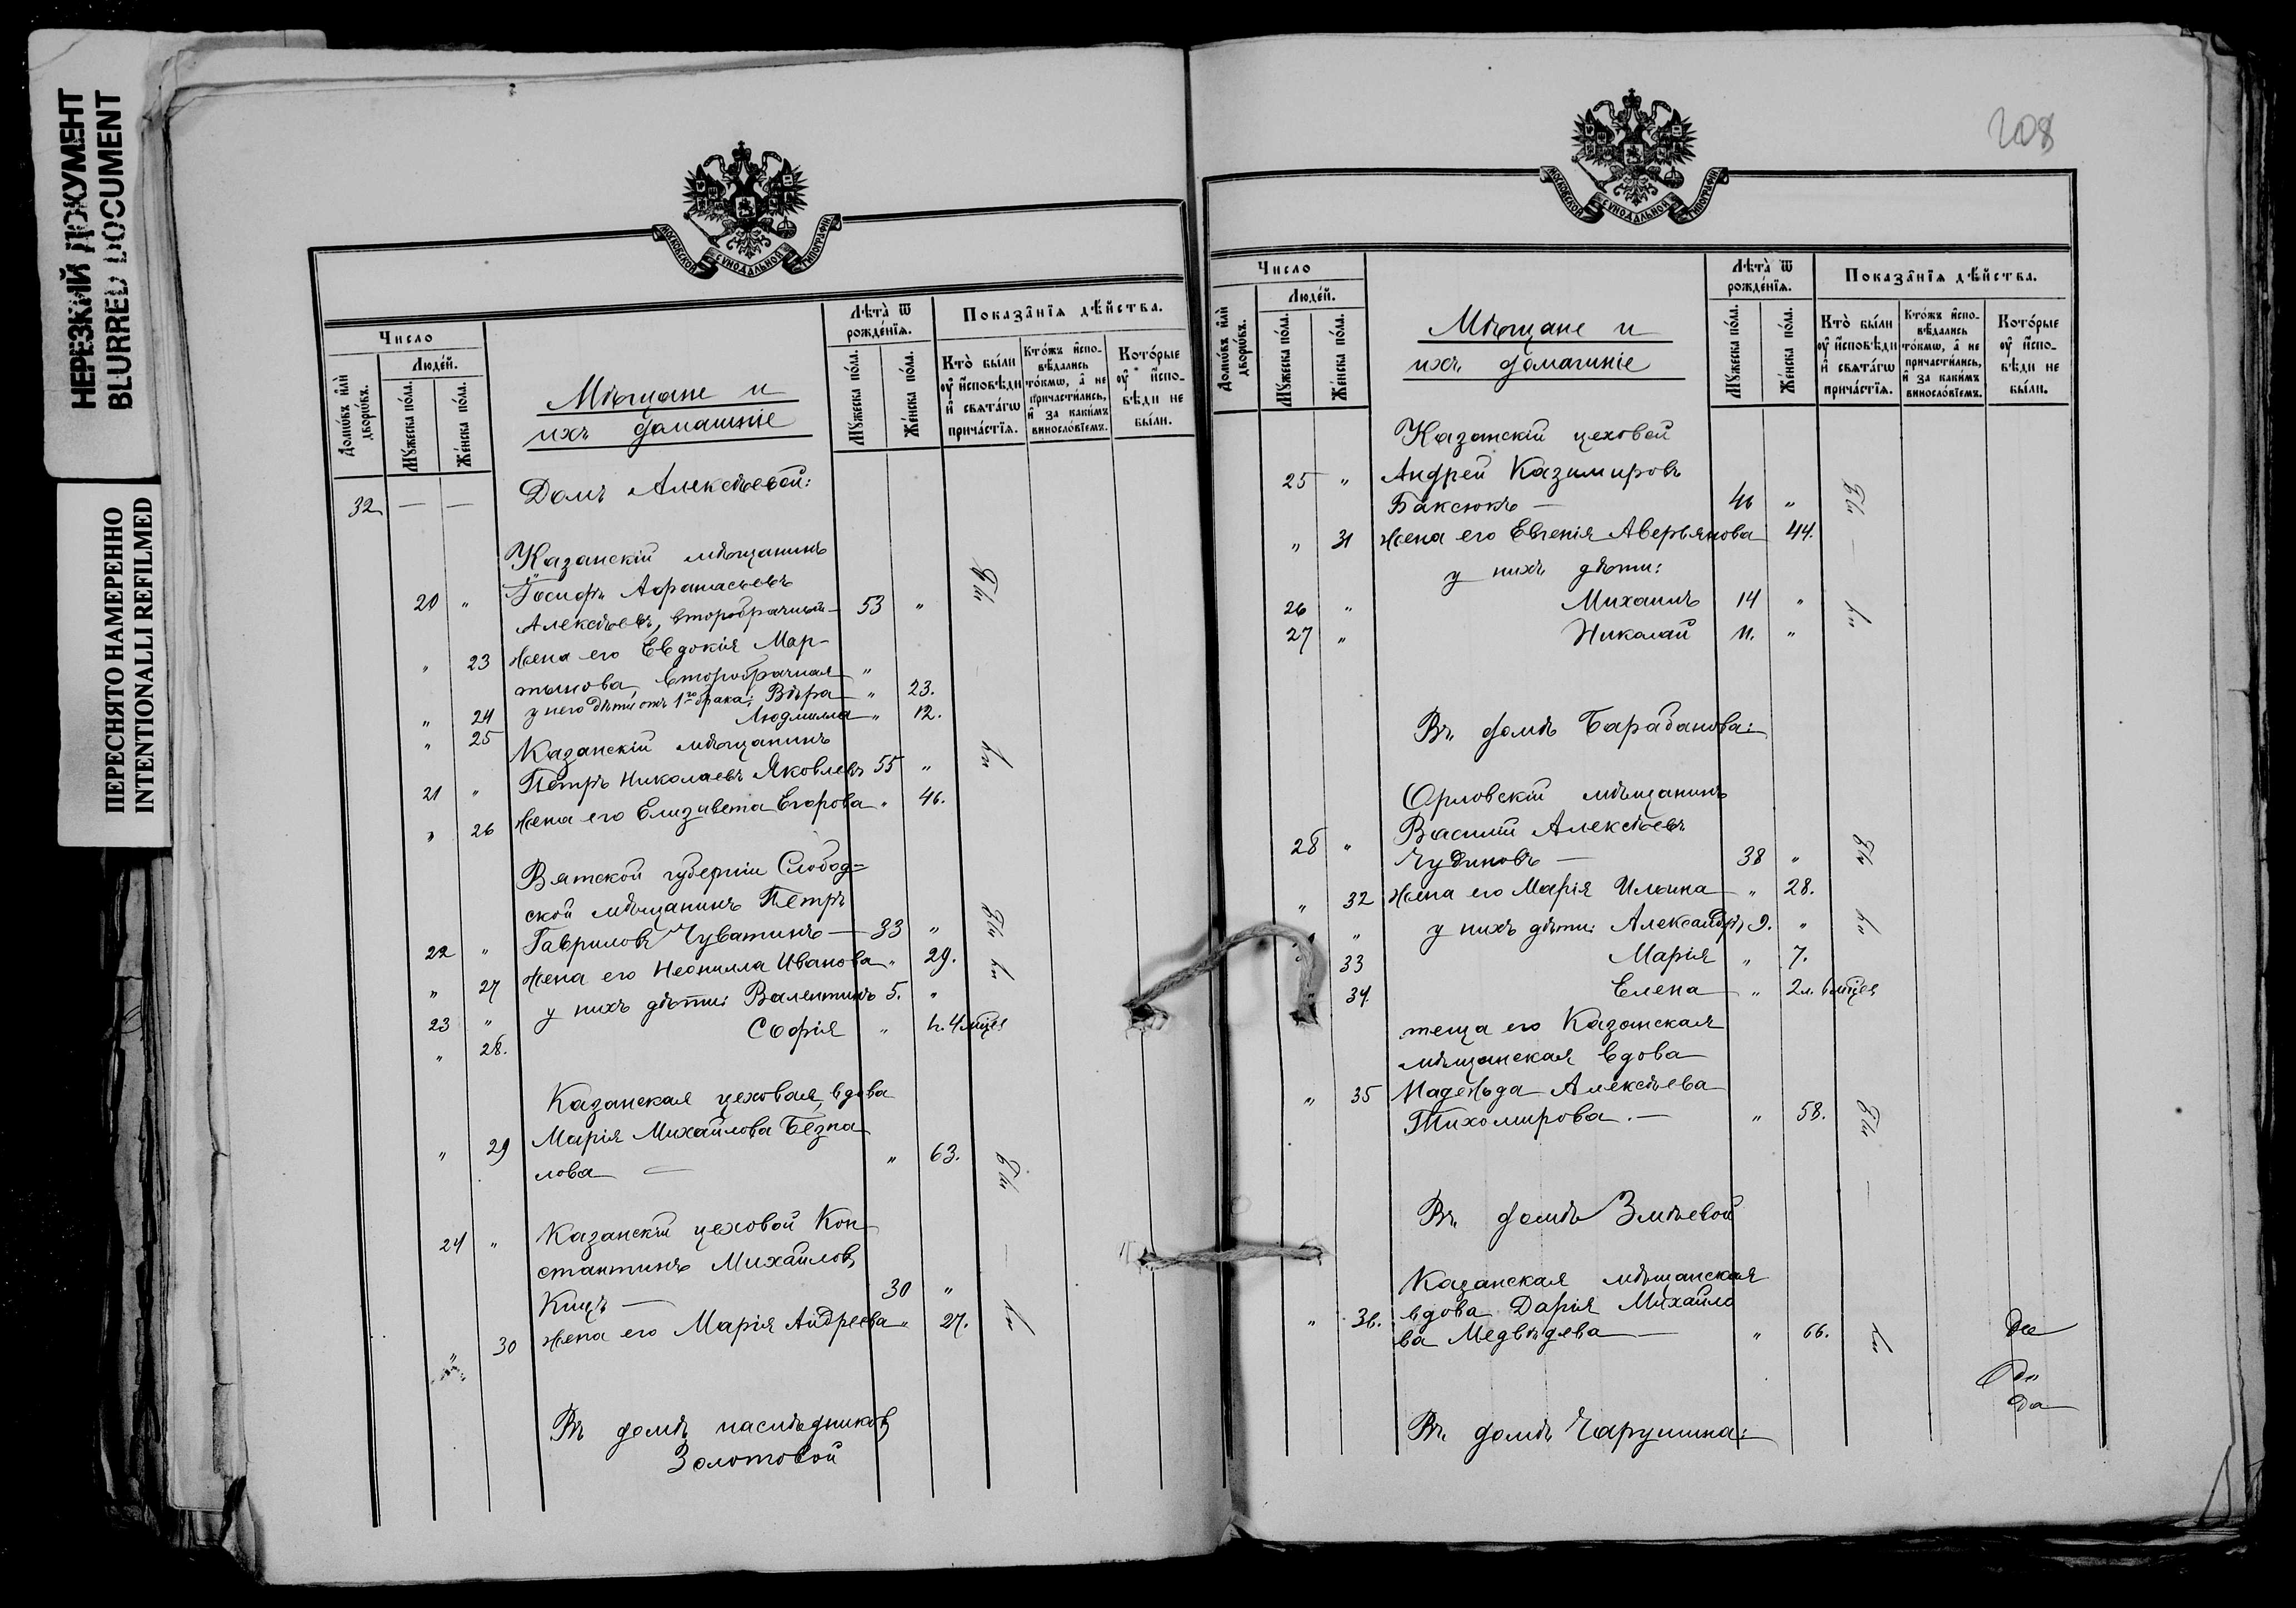 НЕРЕЗКИЙ ДОКУМЕНТ
BLURRED DOCUMENT
ПЕРЕСНЯТО НАМЕРЕННО
INTENTIONALLI REFILMED
МОСКОВСКОЙ СѴНОДАЛЬНОЙ ТИПОГРАФІИ
Число
Людéй.
Домѡ́въ и҆лѝ дворѡ́въ.
Мꙋ́жеска по́ла.
Же́нска по́ла.
Мѣщане и
ихъ домашніе
Лѣта̀ ѿ рожде́нїѧ.
Мꙋ́жеска по́ла.
Же́нска по́ла.
Показа̂нїѧ дѣ́йства.
Кто̀ бы́ли ᲂу҆ и҆сповѣ́ди и҆ свѧта́гѡ прича́стїѧ.
Кто́жъ и҆сповѣ́дались то́кмѡ, а҆ не причасти́лись, и҆ за каки́мъ виносло́вїемъ.
Кото́рые ᲂу҆ и҆сповѣ́ди не бы́ли.
32 — — Домъ Алексѣевой:
Казанскій мѣщанинъ
20 " Іосифъ Афанасьевъ
Алексѣевъ, второбрачный — 53 "
" 23 Жена его Евдокія Мар-
тынова, второбрачная "
" 24 у него дѣти отъ 1го брака: Вѣра " 23.
" 25 Людмилла " 12.
Казанскій мѣщанинъ
21 " Петръ Николаевъ Яковлевъ 55 "
" 26 Жена его Елизавета Егорова " 46.
Вятской губерніи Слобод=
ской мѣщанинъ Петръ
22 " Гавриловъ Чуватинъ — 33 "
" 27 Жена его Неонилла Иванова " 29.
23 " у нихъ дѣти: Валентинъ 5. "
" 28. Софія " 4 мцев
Казанская цеховая вдова
" 29 Марія Михайлова Безпа
лова — " 63.
24 " Казанскій цеховой Кон
стантинъ Михайловъ
Кицъ — 30 "
" 30 Жена его Марія Андреева " 27.
Въ домѣ наслѣдниковъ
Золотовой
208
МОСКОВСКОЙ СѴНОДАЛЬНОЙ ТИПОГРАФІИ
Число
Людéй.
Домѡ́въ и҆лѝ дворѡ́въ.
Мꙋ́жеска по́ла.
Же́нска по́ла.
Мѣщане и
ихъ домашніе
Лѣта̀ ѿ рожде́нїѧ.
Мꙋ́жеска по́ла.
Же́нска по́ла.
Показа̂нїѧ дѣ́йства.
Кто̀ бы́ли ᲂу҆ и҆сповѣ́ди и҆ свѧта́гѡ прича́стїѧ.
Кто́жъ и҆сповѣ́дались то́кмѡ, а҆ не причасти́лись, и҆ за каки́мъ виносло́вїемъ.
Кото́рые ᲂу҆ и҆сповѣ́ди не бы́ли.
Казанскій цеховой
25 " Андрей Казимировъ
Баксюкъ — 46 "
" 31 Жена его Евгенія Аверьянова 44.
у нихъ дѣти:
26 " Михаилъ 14 "
27 " Николай 11. "
Въ домѣ Барабанова:
Орловскій мѣщанинъ
28 " Василій Алексѣевъ
Чудиновъ — 38 "
" 32 Жена его Марія Ильина " 28.
" у нихъ дѣти: Александръ 9. "
33 Марія " 7.
34. Елена " 2 л. 6 мцев
теща его Казанская
мѣщанская вдова
" 35 Надежда Алексѣева
Тихомирова. — " 58.
Въ домѣ Змѣевой
Казанская мѣщанская
" 36. вдова Дарія Михайло
ва Медвѣдева — " 66.
Въ домѣ Чарушина: